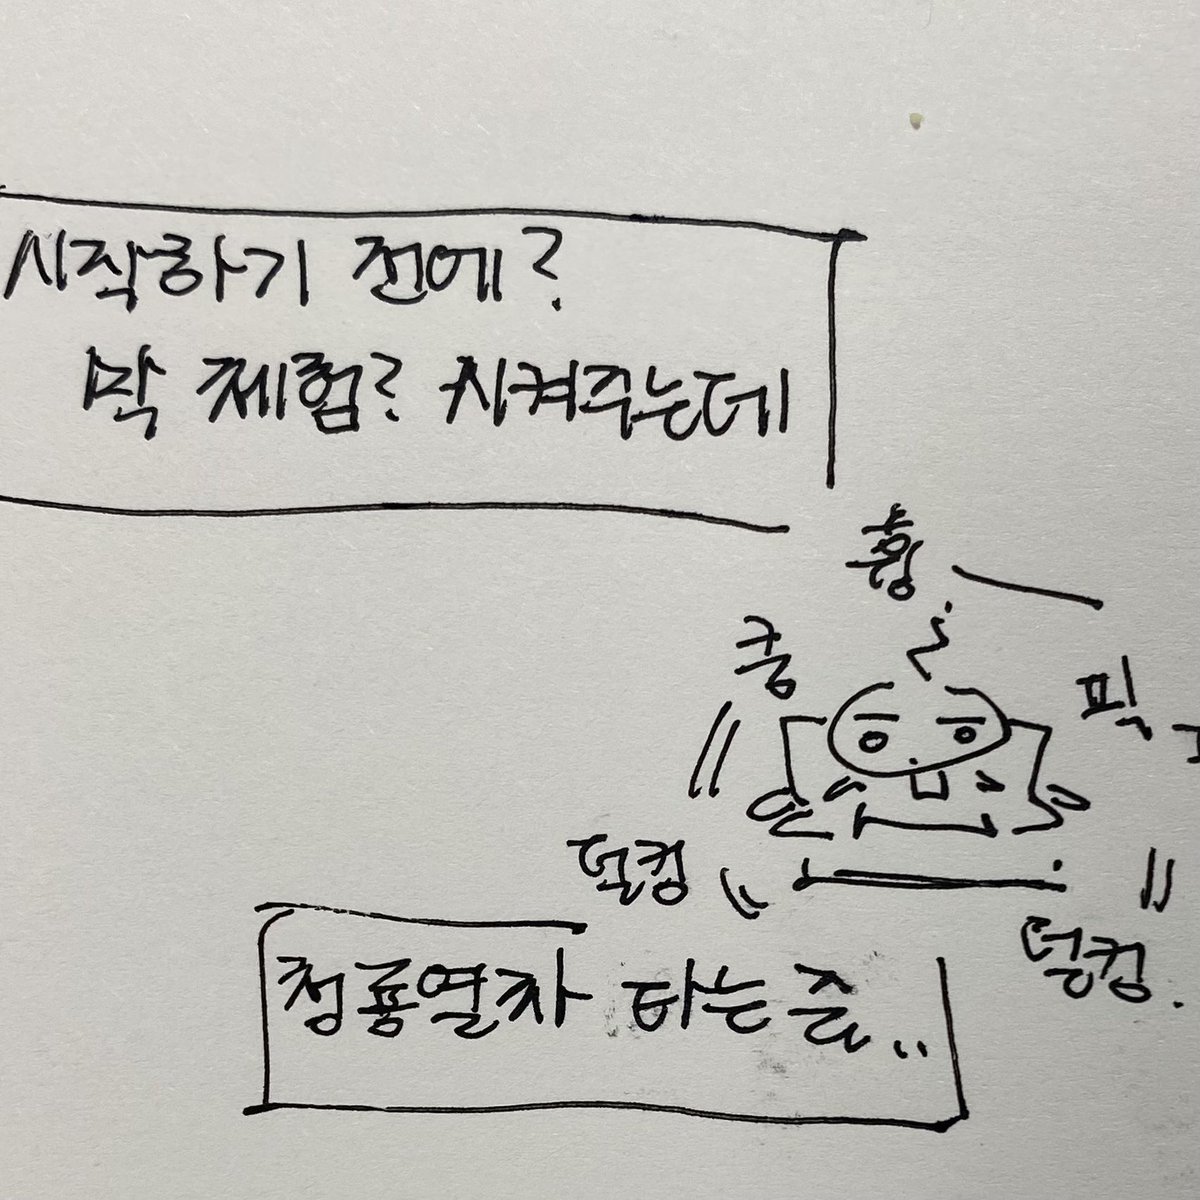 시작하기 전에?
막 체험? 시켜주는데
휭
쿵
픽
덜컹
덩컹.
청룡열차 타는 줄..